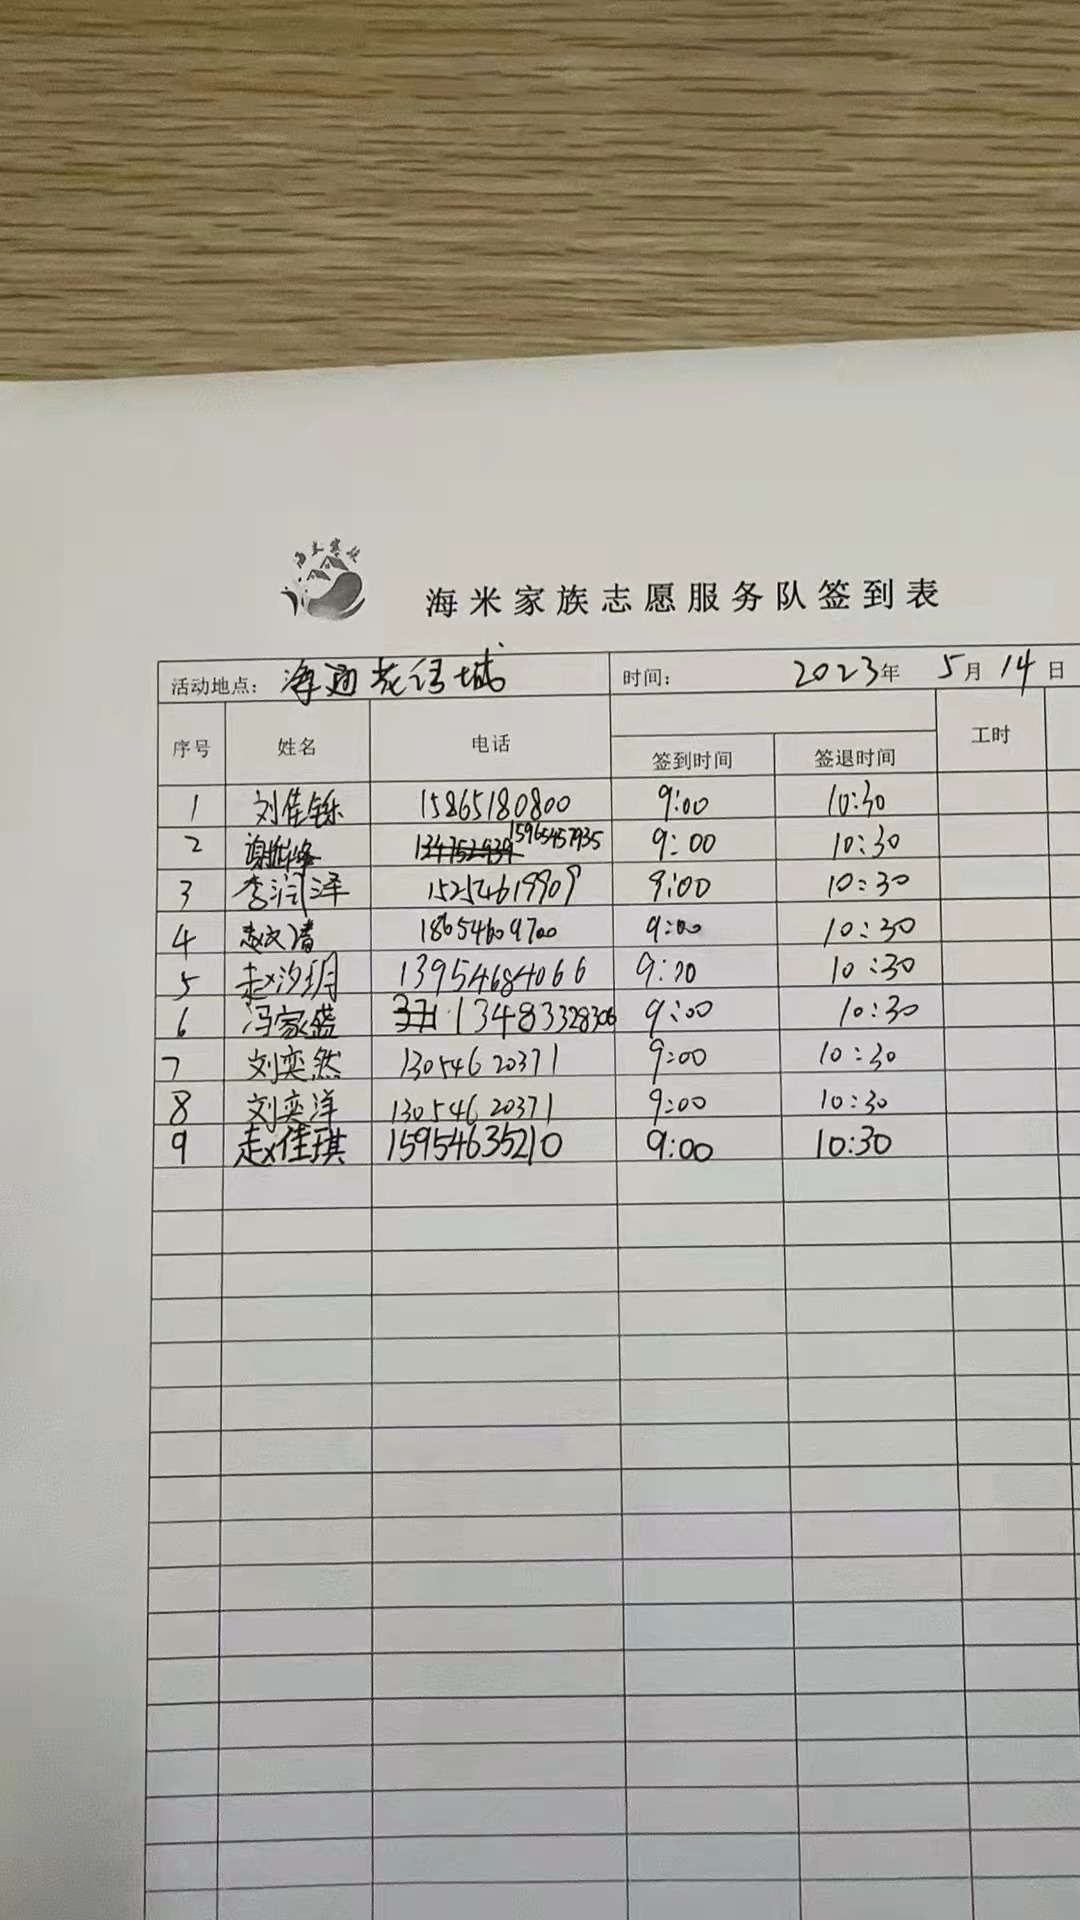 海米家族
海米家族志愿服务队签到表
活动地点: 海通花语城 时间: 2023年 5月14日
序号 姓名 电话 签到时间 签退时间 工时
1 刘佳铄 15865180800 9:00 10:30
2 15965457935 9:00 10:30
3 李润泽 15254619909 9:00 10:30
4 赵文清 18654609700 9:00 10:30
5 赵汐玥 13954684066 9:00 10:30
6 冯家盛 13483328306 9:00 10:30
7 刘奕然 13054620371 9:00 10:30
8 刘奕洋 13054620371 9:00 10:30
9 赵佳琪 15954635210 9:00 10:30